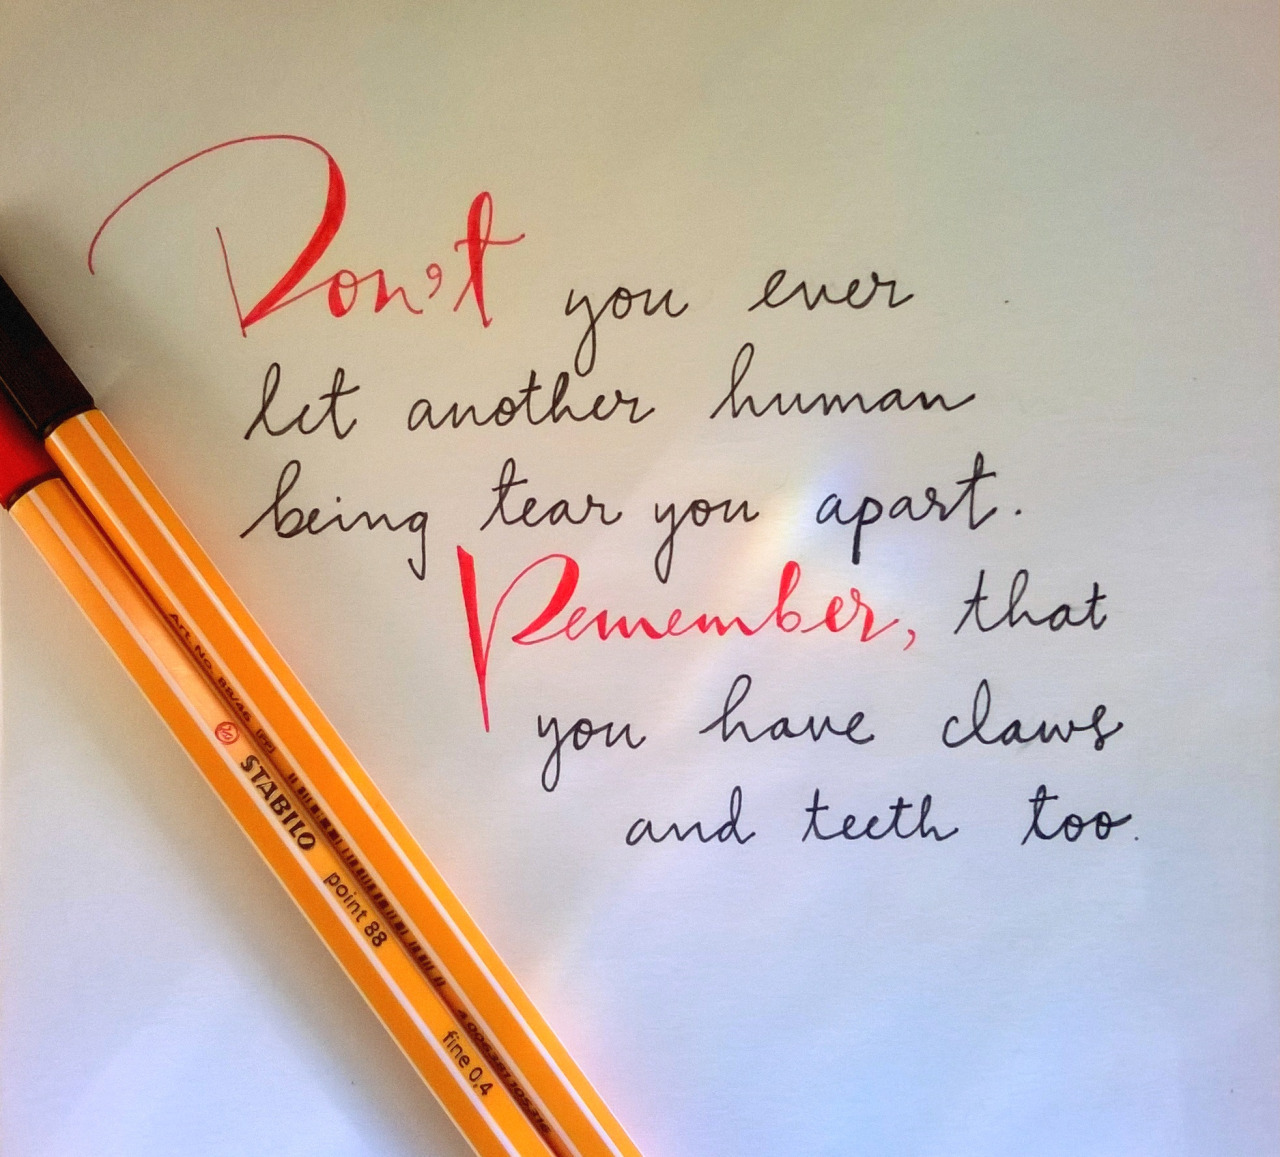 Don't you ever
let another human
being tear you apart.
Remember, that
you have claws
and teeth too.
STABILO point 88 fine 0,4